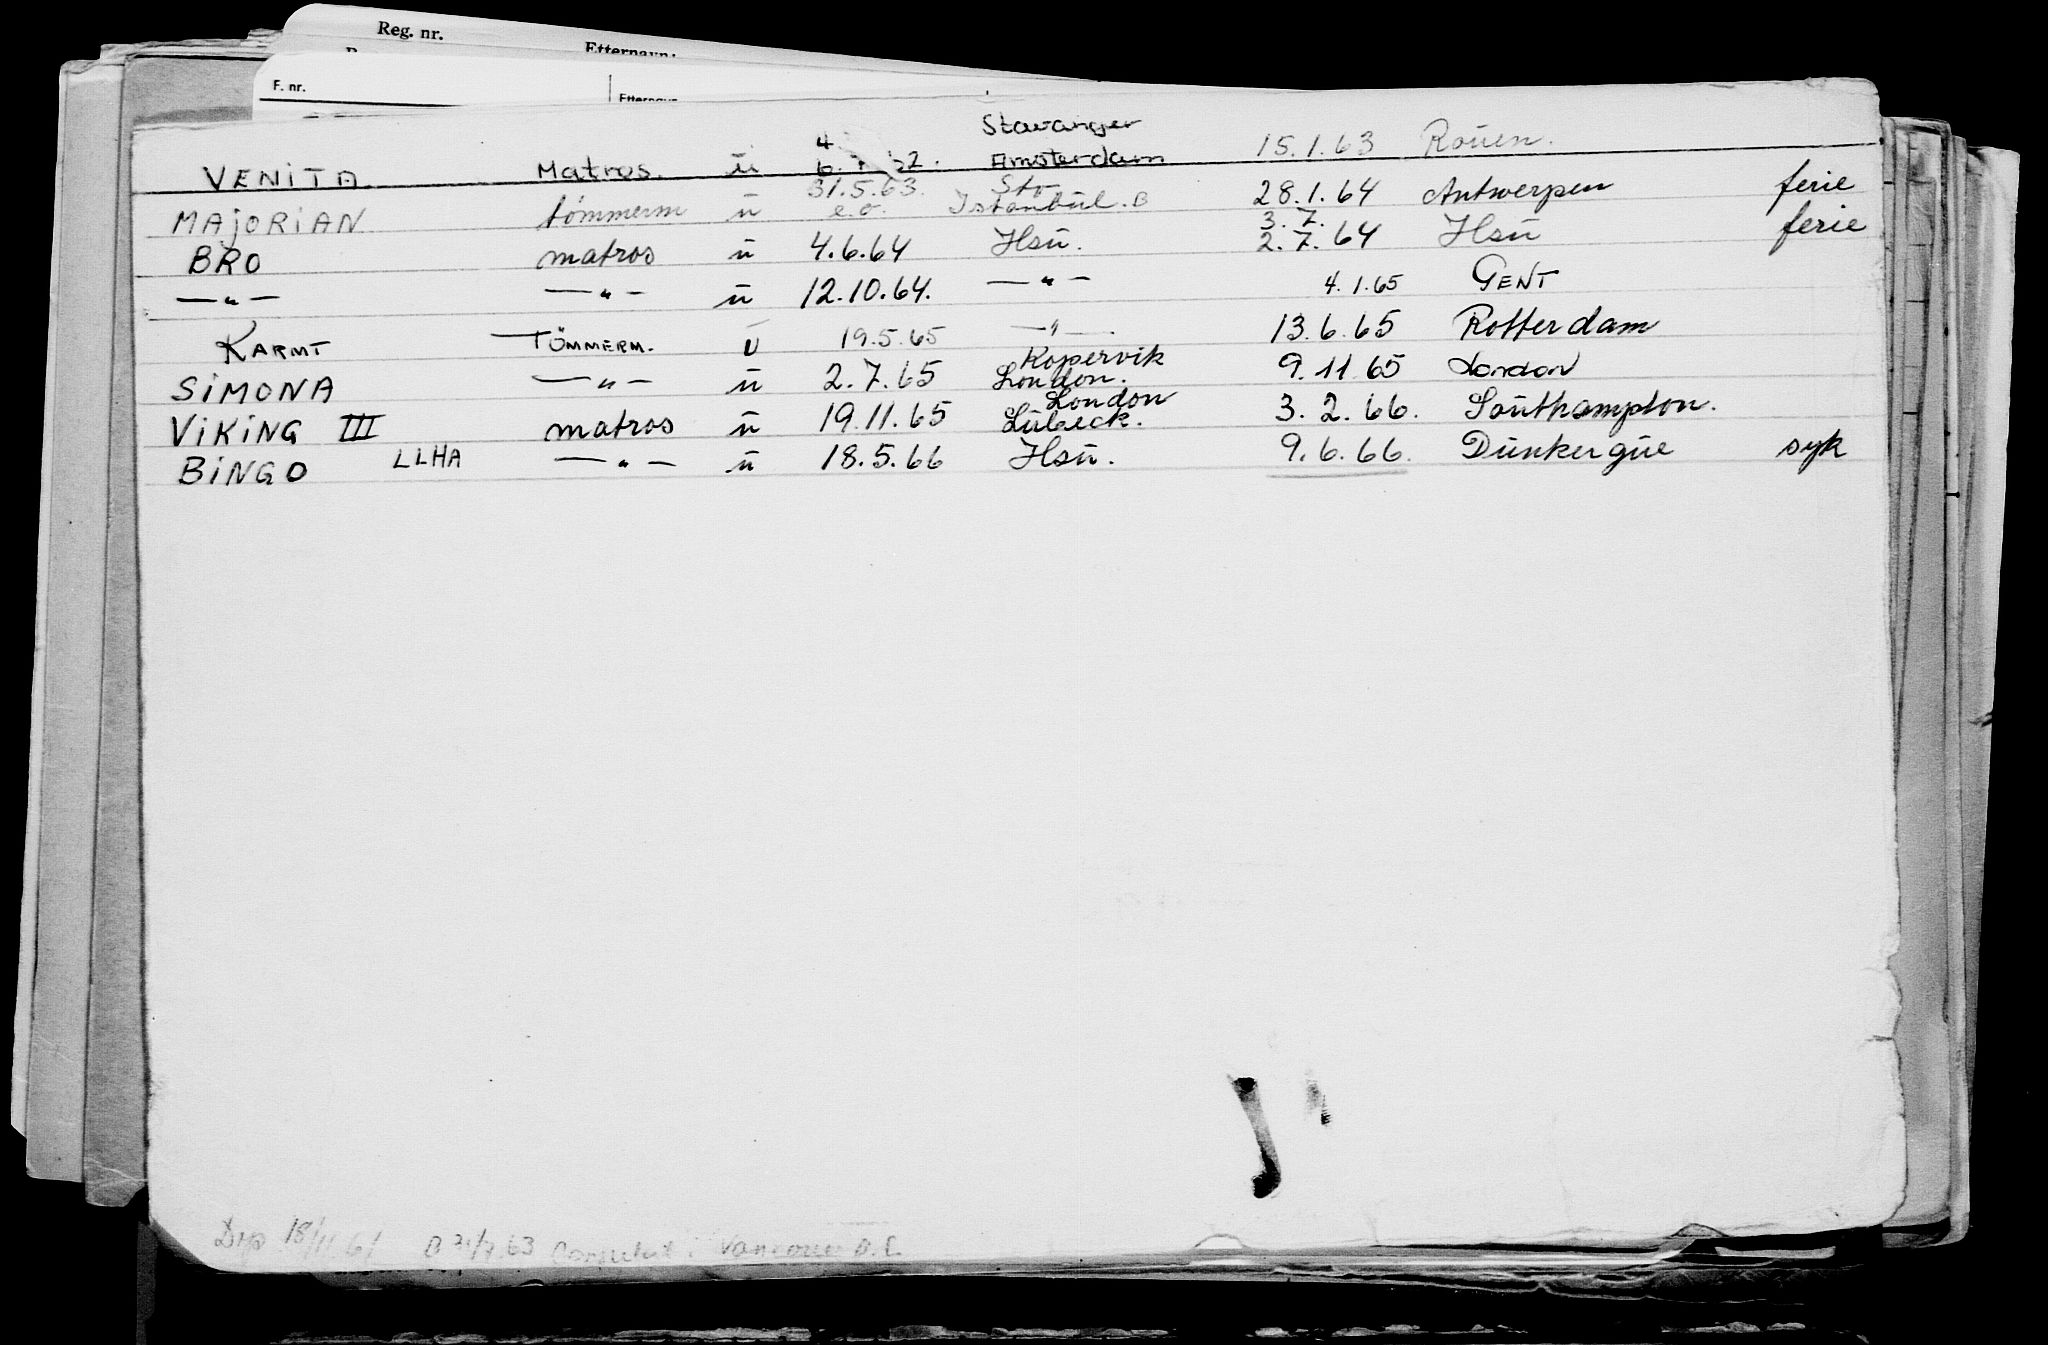 Reg. nr.
Etternavn:
F. nr.
Etternavn
Stavanger
VENITA Matros. u 4 6. 2. Amsterdam 15.1.63 Rouen.
31.5.63. Sto
MAJORIAN tömmerm u e.o. Istanbul. B 28.1.64 Antwerpen ferie
3.7.
BRO matros u 4.6.64 Hsu. 2.7.64 Hsu ferie
— " — — " — u 12.10.64. — " — 4.1.65 GENT
KARMT TÖMMERM. U 19.5.65 — " — 13.6.65 Rotterdam
Kopervik
SIMONA — " — u 2.7.65 London. 9.11.65 London
London
VIKING III matros u 19.11.65 Lübeck. 3.2.66. Southampton.
BINGO LLHA — " — u 18.5.66 Hsu. 9.6.66. Dunkerque syk
Dup 18/11.61 63 Vancouver B.C.